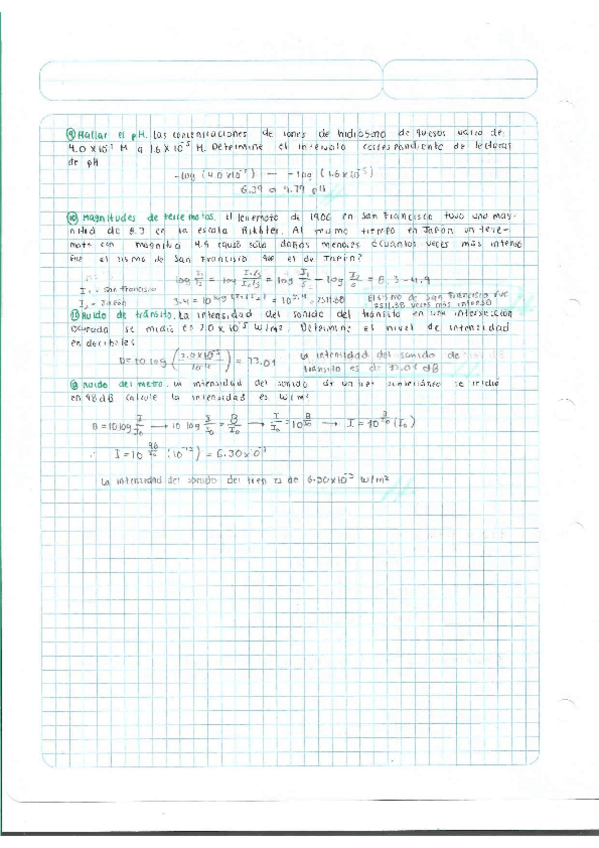 ⑨ Hallar el pH. Las concentraciones de iones de hidrógeno de quesos varía de
4.0 x 10⁻⁷ M a 1.6 x 10⁻⁵ M. Determine el intervalo correspondiente de lecturas
de pH
-log (4.0 x10⁻⁷) — -log (1.6x10⁻⁵)
6.39 a 4.79 pH
⑩ Magnitudes de terremotos. El terremoto de 1906 en San Francisco tuvo una mag-
nitud de 8.3 en la escala Richter. Al mismo tiempo en Japón un terre-
moto con magnitud 4.9 causó sólo daños menores ¿Cuántas veces más intenso
fue el sismo de San Francisco que el de Japón?
I₁ = San Francisco
log I₁/I₂ = log I₁/S / I₂/S = log I₁/S - log I₂/S = 8.3 - 4.9
I₂ = Japón
= 10³·⁴ = 2511.88
El sismo de San Francisco fue
2511.88 veces más intenso
⑪ Ruido de tránsito. La intensidad del sonido del tránsito en una intersección
ocupada se midió en 2.0 x 10⁻⁵ W/m² Determine el nivel de intensidad
en decibeles
= 73.01
La intensidad del sonido de
tránsito es de 73.01 dB
Ruido del metro. La intensidad del sonido de un tren subterráneo se midió
en 98 dB calcule la intensidad es W/m²
B = 10 log I/I₀ → 10 log I/I₀ = B/I₀ → I/I₀ = 10^B/10 → I = 10^B/10 (I₀)
∴ I = 10^98/10 (10⁻¹²) = 6.30x10⁻³
La intensidad del sonido del tren es de 6.30x10⁻³ W/m²